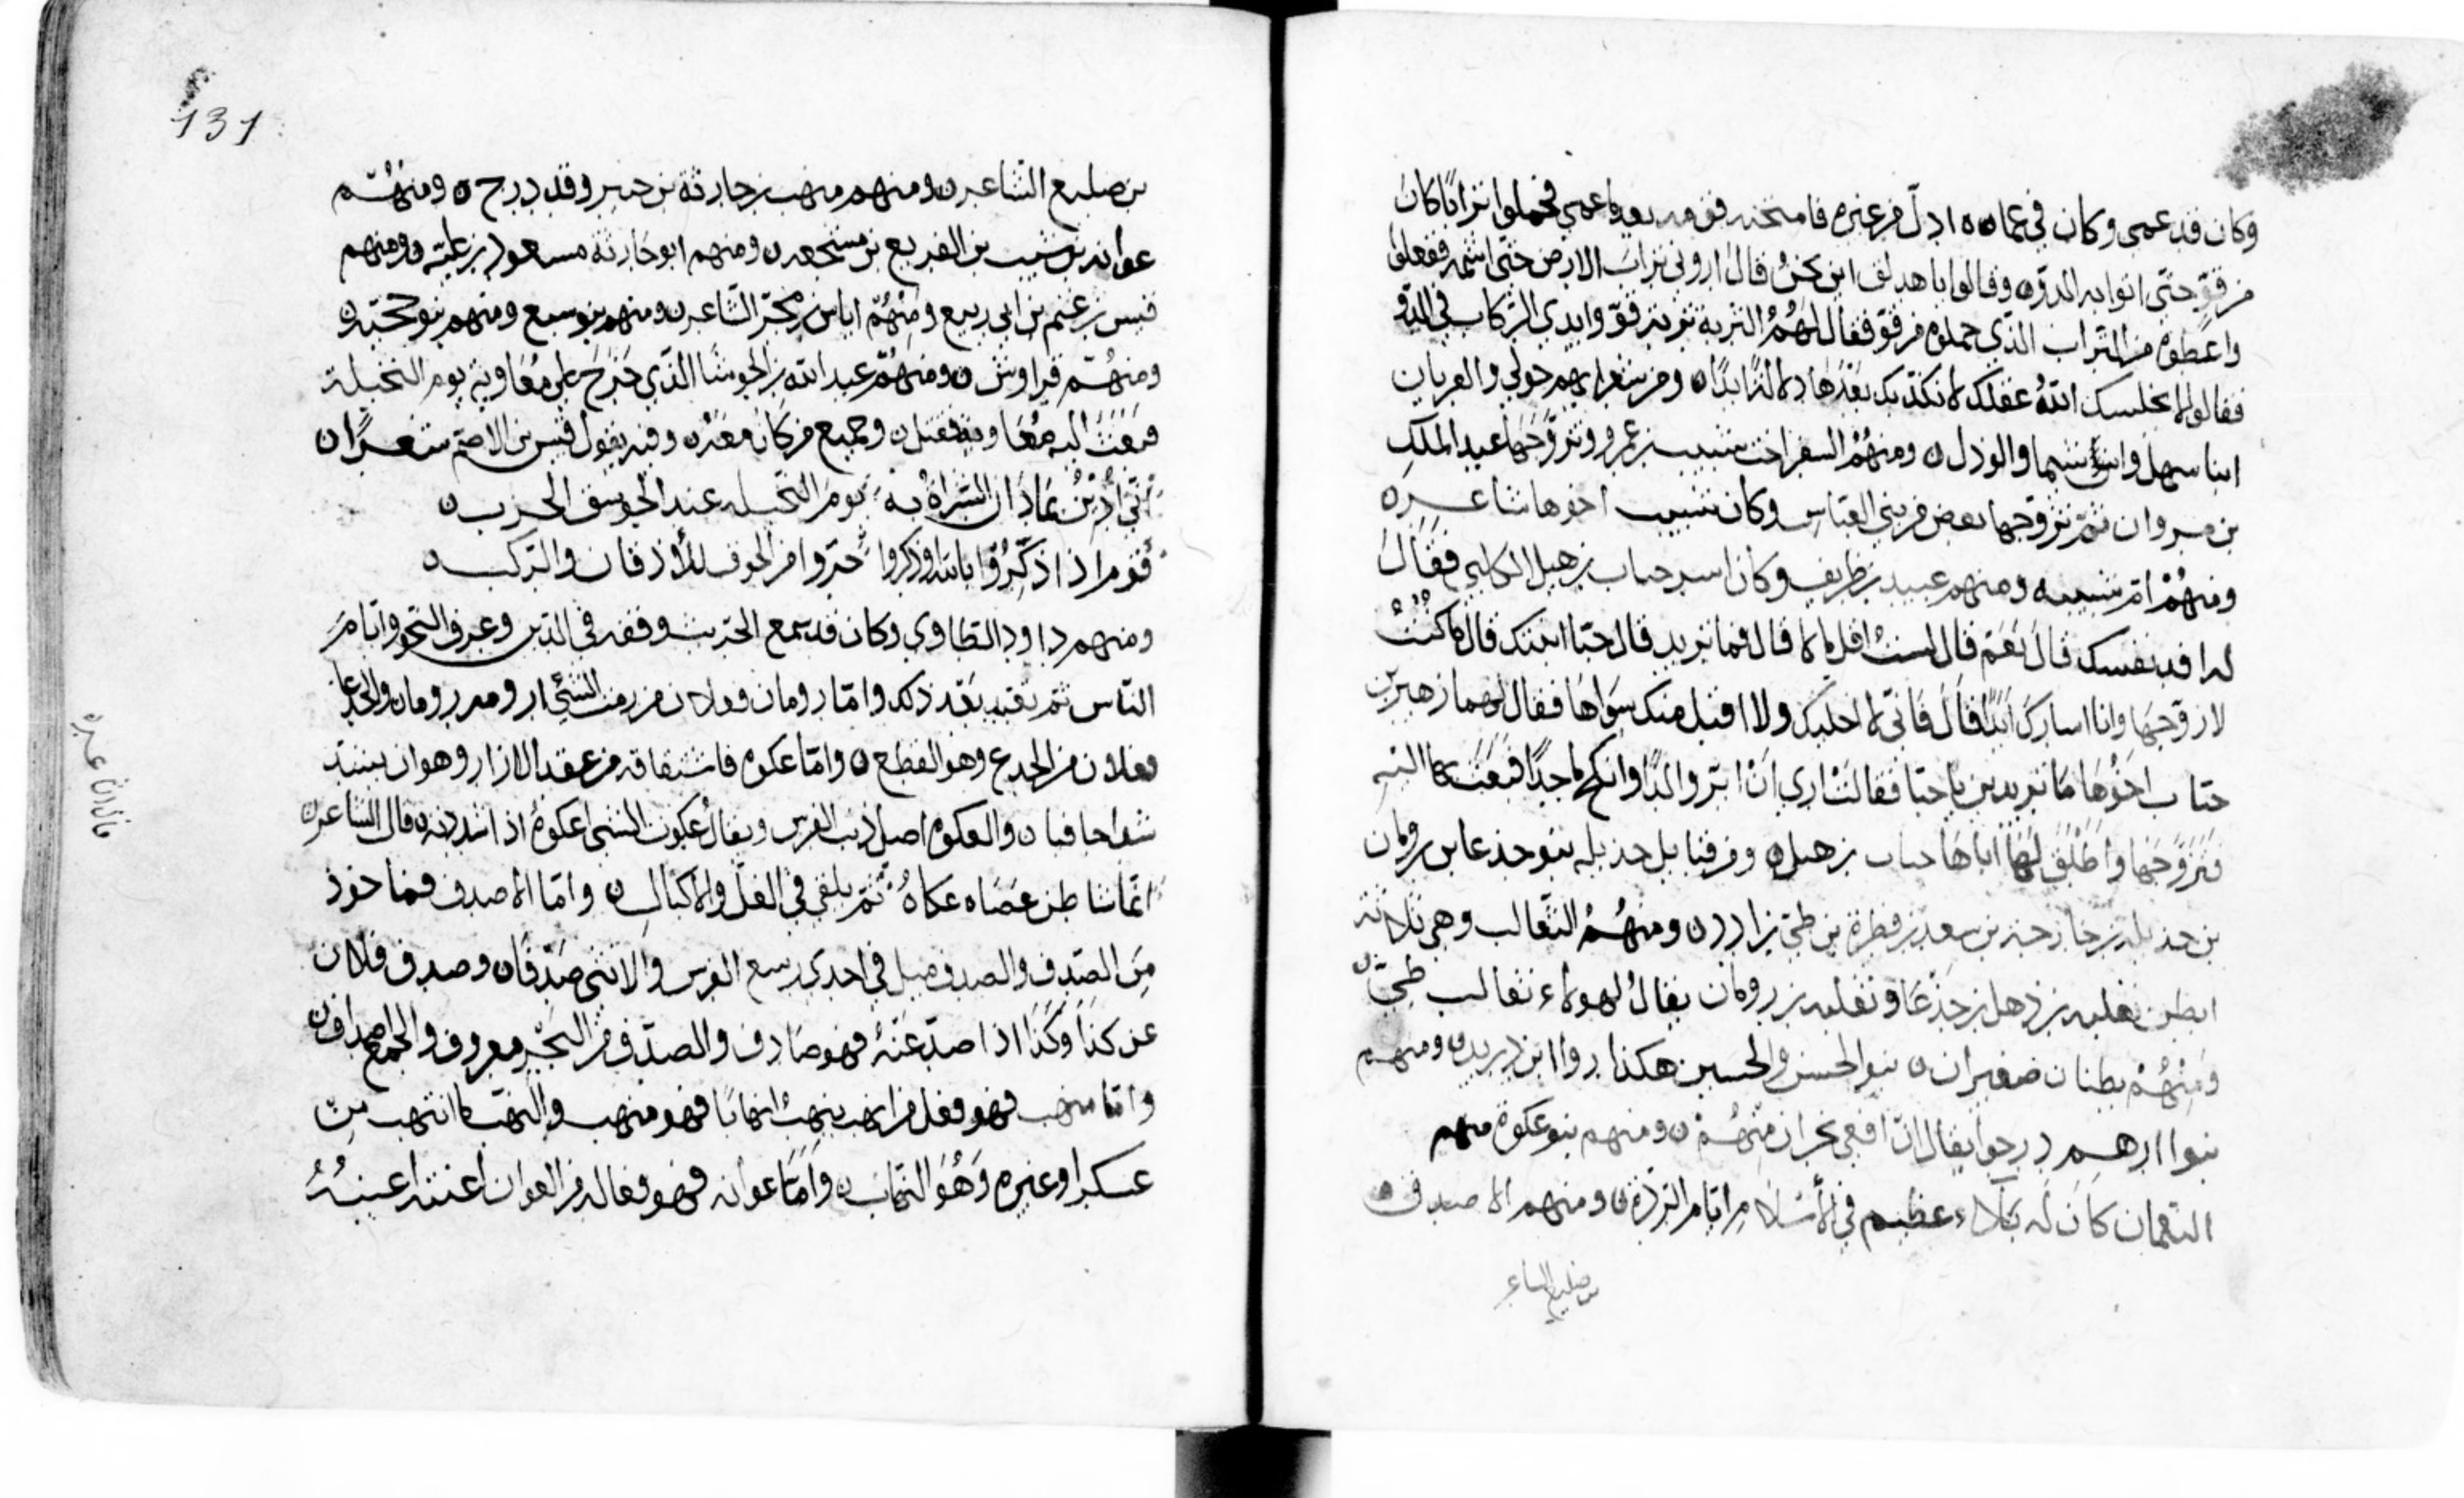 وكان قد عمى وكان في عماه ادل من غيره فامتحنه قومه بعد ما عمي فحملوا ترابا كان
من قو حتى اتوا به الدوه وقالوا يا هدلق اين نحن قال اروني تراب الارض حتى اشمه ففعلوا
واعطوه من التراب الذي حملوه من قو فقال لهم التربة تربة قو وايدي الركاب في الدو
فقالوا لا يخلسك الله عقلك لا نكذبك بعدها دلالتا ابدا ٥ ومن شعرايهم حولي والعريان
ابنا سهل وابن شيما والوذل ٥ ومنهم السفر اخت شبيب بن عمرو وتزوجها عبد الملك
بن مروان ثم تزوجها بعض من بني العباس وكان شبيب اخوها شاعره
ومنهم ام شبيب ه ومنهم عبيد بن طريف وكان اسر حباب بن هبل الكلبي فقال
له افد نفسك قال نعم قال لست اقل مالا قال فما تريد قال حبا ابنتك قال ما كنت
لازوجها وانا اسارك ابدا قال فاني لا اخليك ولا اقبل منك سواها فقال لهما زهير بن
حباب اخوها ما تريدين يا حبا فقالت اري ان ابر والدا وانكح ماجدا فبعث بها اليه
فتزوجها واطلق لها اباها حباب بن هبل ٥ ومن قبايل جديله بنو جدعا بن رومان
بن جديلة بن خارجة بن سعد بن فطرة بن طي بن ادد ٥ ومنهم الثعالب وهي ثلاثة
ابطن ثعلبه بن ذهل بن جدعا وثعلبه بن رومان يقال لهولاء ثعالب طي
ومنهم بطنان صغيران ٥ بنو الحسن والحسين هكذا روا ابن دريد ٥ ومنهم
بنوا ارهم درجوا يقال ان افعي نجران منهم ٥ ومنهم بنو عكوة منهم
النعمان كان له بلاء عظيم في الاسلام ايام الردة ٥ ومنهم الاصدف ٥
بن صليع الشاعر
131
بن صليع الشاعر ٥ ومنهم منهب بن حارثة بن جبير وقد درج ٥ ومنهم
عوانه بن شبيب بن القريع بن مشجعه ٥ ومنهم ابو حارثة مسعود بن علبه ٥ ومنهم
قيس بن غنم بن ابي ربيع ومنهم اياس بن مجر الشاعر ٥ ومنهم بنو سبع ومنهم بنو حجيه ٥
ومنهم قراوش ٥ ومنهم عبد الله بن الحوشا الذي خرج على معاوية يوم النخيلة
فبعث اليه معاوية فقتل ٥ وجميع من كان معه ٥ وفيه يقول قيس بن الاصم شعرا ٥
اني ادين بما دان الشراة به يوم النخيله عند الجوسق الخرب ٥
قوم اذا ذكروا بالله او ذكروا خروا من الخوف للاذقان والركب ٥
ومنهم داود الطاوي وكان قد سمع الحديث وفقه في الدين وعرف النحو وايام
الناس ثم تعبد بعد ذلك واما رومان فعلان من رمت الشئ ارومه رومان والجدعا
فعلا من الجدع وهو القطع ٥ واما عكوه فاشتقاقه من عقد الازار وهو ان يشتد
شدا جافيا ٥ والعكوه اصل ذنب الفرس ويقال عكوت الشي اعكوه اذا شددته ٥ قال الشاعر ٥
ايما شاطن عصاه عكاه ثم يلقى في الغل والاكبال ٥ واما الاصدف فماخوذ
من الصدف والصدف ميل في احدى رسغ الفرس والانثى صدفا ٥ وصدف فلان
عن كذا وكذا اذا صد عنه فهو صادف والصدف من البحر معروف والجمع اصداف ٥
واما منهب فهو مفعل من انهب ينهب انهابا فهو منهب والنهب ما انتهب من
عسكر او غيره وهو النهاب ٥ واما عوانه فهو فعاله من العوان اعنته اعينه